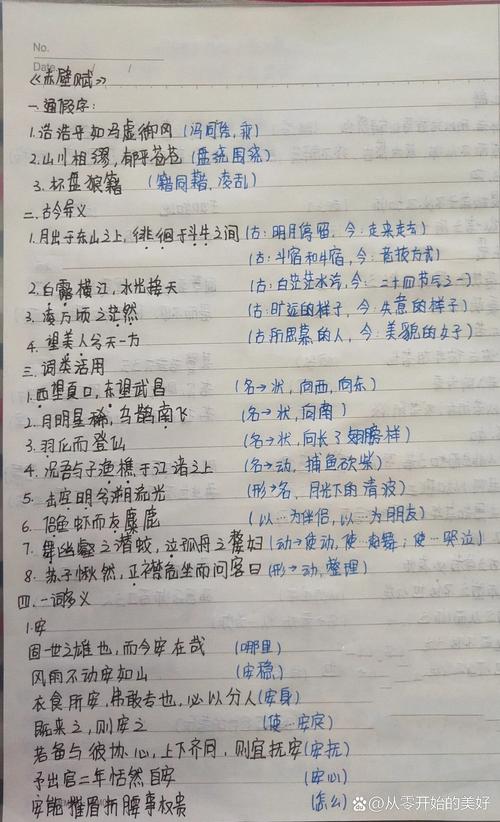 No.
Date / /
《赤壁赋》
一.通假字:
1.浩浩乎如冯虚御风 (冯同凭,乘)
2.山川相缪,郁乎苍苍 (盘绕围绕)
3.杯盘狼籍 (籍同藉,凌乱)
二.古今异义
1.月出于东山之上,徘徊于斗牛之间 (古:明月停留,今:走来走去)
(古:斗宿和牛宿,今:音拔方式)
2.白露横江,水光接天 (古:白茫茫水汽,今:二十四节气之一)
3.凌万顷之茫然 (古:旷远的样子,今:失意的样子)
4.望美人兮天一方 (古:所思慕的人,今:美貌的女子)
三.词类活用
1.西望夏口,东望武昌 (名→状,向西,向东)
2.月明星稀,乌鹊南飞 (名→状,向南)
3.羽化而登仙 (名→状,向长了翅膀样)
4.况吾与子渔樵于江渚之上 (名→动,捕鱼砍柴)
5.击空明兮溯流光 (形→名,月光下的清波)
6.侣鱼虾而友麋鹿 (以…为伴侣,以…为朋友)
7.舞幽壑之潜蛟,泣孤舟之嫠妇 (动→使动,使…起舞;使…哭泣)
8.苏子愀然,正襟危坐而问客曰 (形→动,整理)
四.一词多义
1.安
固一世之雄也,而今安在哉 (哪里)
风雨不动安如山 (安稳)
衣食所安,弗敢专也,必以分人 (安身)
既来之,则安之 (使…安定)
若备与彼协心,上下齐同,则宜抚安 (安抚)
予出官二年恬然自安 (安心)
安能摧眉折腰事权贵 (怎么)
头条 @从零开始的美好